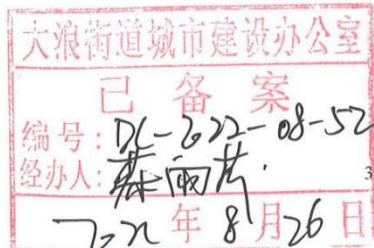 大浪街道城市建设办公室
已备案
编号:DL-2022-08-52
经办人:
2022年8月26日
3